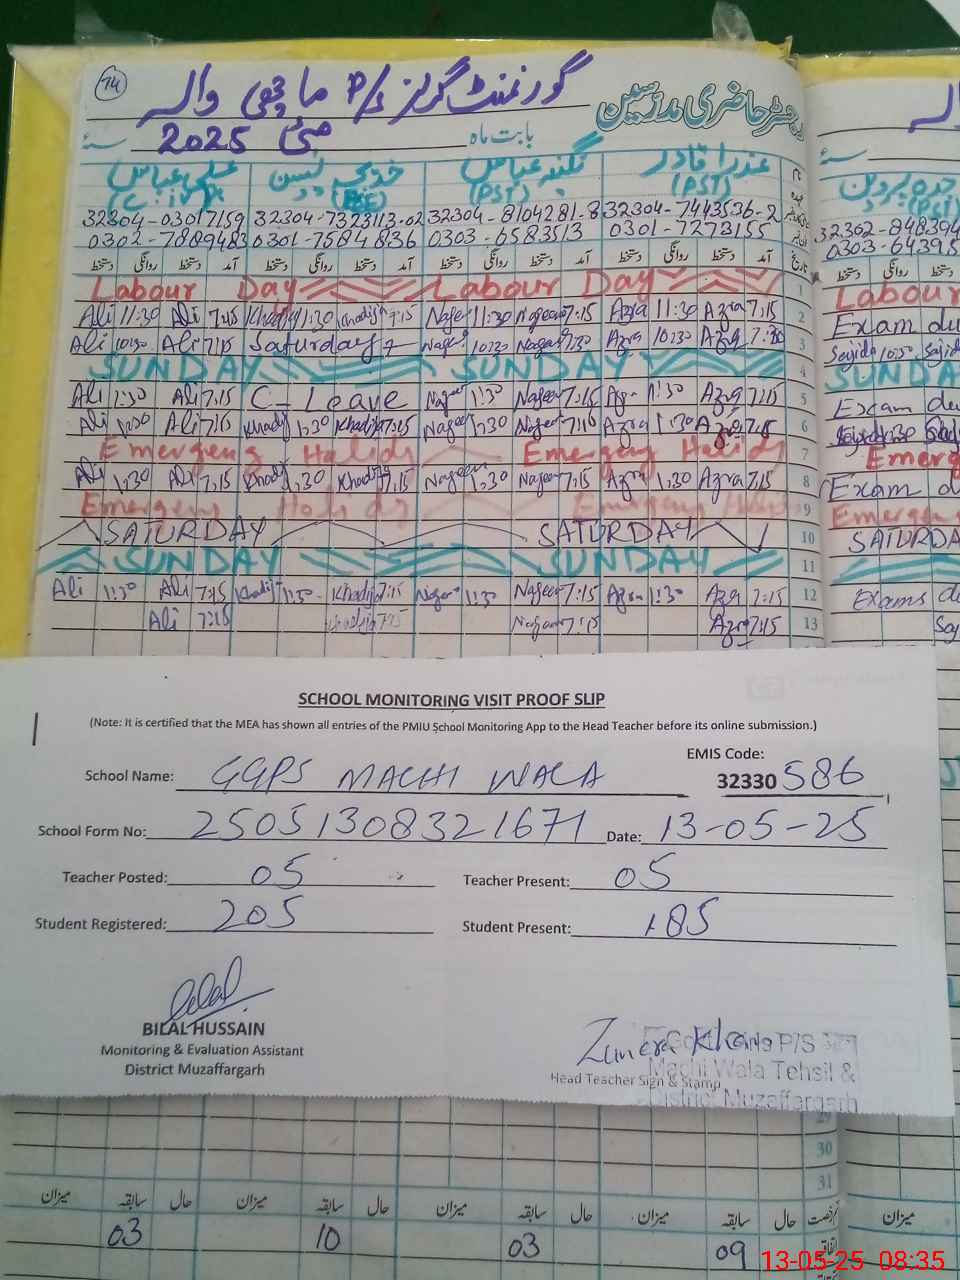 74
گورنمنٹ گرلز P/S ماچھی والہ
رجسٹر حاضری مدرسین
بابت ماہ مئی 2025 سنہ
عذرا قادر نگینہ عباس علی عباس
(PST) (PST)
32304-7443536-2 32304-8104281-8 32304-7323113-02 32304-03017159
0301-7273155 0303-6583513 0301-7584836 0302-7889483
32302-848394
0303-64395
آمد دستخط روانگی دستخط آمد دستخط روانگی دستخط آمد دستخط روانگی دستخط آمد دستخط روانگی دستخط
1 Labour Day Labour Day Labour
2 Ali 11:30 Ali 7:15 Khadija 11:30 Khadija 7:15 Nageen 11:30 Nageen 7:15 Azra 11:30 Azra 7:15 Exam du
3 Ali 10:30 Ali 7:15 Saturday Nageen 10:30 Nageen 7:30 Azra 10:30 Azra 7:30 Sajida 10:30 Sajid
4 SUNDAY SUNDAY SUNDA
5 Ali 1:30 Ali 7:15 C-Leave Nageen 1:30 Nageen 7:15 Azra 1:30 Azra 7:15 Exam du
6 Ali 1:30 Ali 7:15 Khadij 1:30 Khadija 7:15 Nageen 1:30 Nageen 7:15 Azra 1:30 Azra 7:15
7 Emergeng Haliday Emergeng Haliday Emerg
8 Ali 1:30 Ali 7:15 Khadij 1:30 Khadij 7:15 Nageen 1:30 Nageen 7:15 Azra 1:30 Azra 7:15 Exam du
9 Emergeng Holiday Emergeng Emergen
10 SATURDAY SATURDAY SATURDA
11 SUNDAY SUNDAY
12 Ali 1:30 Ali 7:15 Khadija 1:30 Khadija 7:15 Nageen 1:30 Nageen 7:15 Azra 1:30 Azra 7:15 Exams du
13 Ali 7:15 Khadija 7:15 Nageen 7:15 Azra 7:15 Saj
SCHOOL MONITORING VISIT PROOF SLIP
(Note: It is certified that the MEA has shown all entries of the PMIU School Monitoring App to the Head Teacher before its online submission.)
EMIS Code:
School Name: GGPS MACHI WALA 32330 586
School Form No: 25051308321671 Date: 13-05-25
Teacher Posted: 05 Teacher Present: 05
Student Registered: 205 Student Present: 185
Bilal
BILAL HUSSAIN
Monitoring & Evaluation Assistant
District Muzaffargarh
Zunera Khan
P/S
Machi Wala Tehsil &
Head Teacher Sign & Stamp
District Muzaffargarh
29
30
31
حال سابقہ میزان حال سابقہ میزان حال سابقہ میزان حال سابقہ میزان
میزان
03 10 03 09
اتفاقیہ
13-05-25 08:35